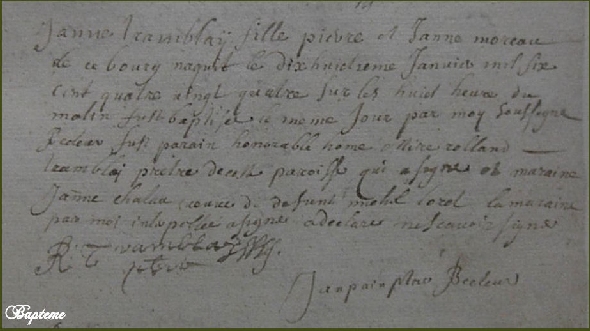 Janne tramblay fille pierre et Janne moreau
de ce bourg naquit le dixhuictieme Janvier mil six
cent quatre vingt quatre sur les huict heure du
matin fust baptisée le meme Jour par moy soussigne
Recteur fust parain honorable home rolland
tramblai pretre de cett paroisse qui a signe et maraine
Janne veuve de defunt michel corol la maraine
par moi interpellee a signe a declaré ne scavoir signe
R. Tramblay
ptre
Recteur
Bapteme